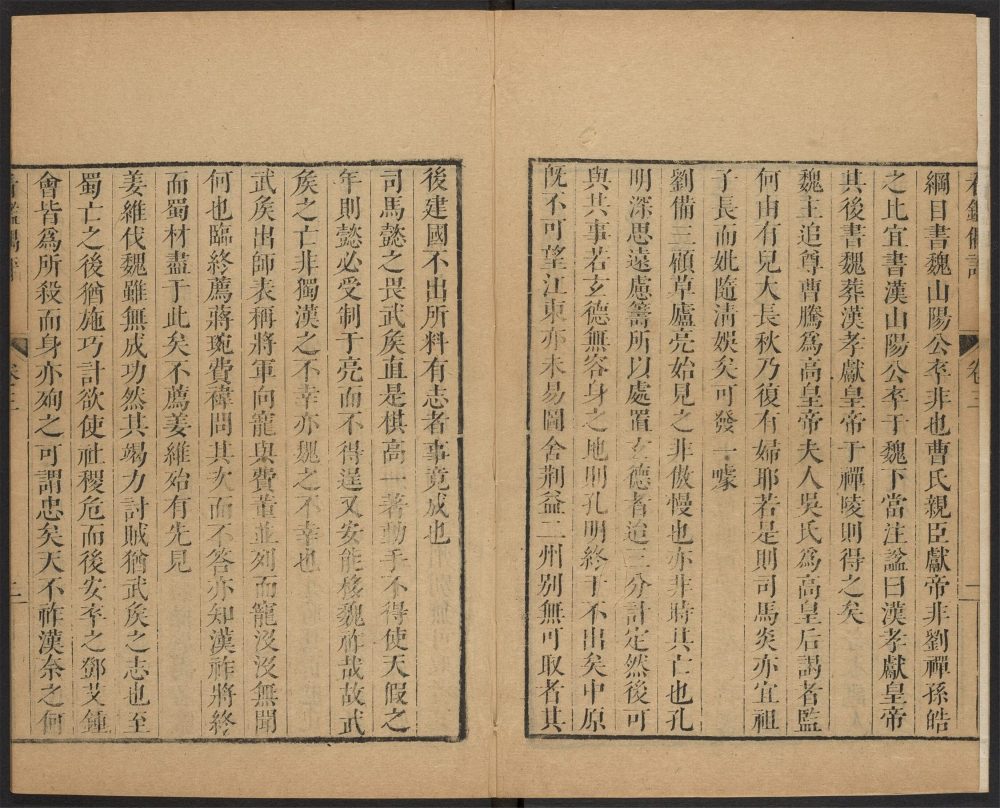 卷三
綱目書魏山陽公卒非也曹氏親臣獻帝非劉禪孫皓
之比宜書漢山陽公卒于魏下當注諡曰漢孝獻皇帝
其後書魏葬漢孝獻皇帝于禪陵則得之矣
魏主追尊曹騰爲高皇帝夫人吳氏爲高皇后謁者監
何由有兒大長秋乃復有婦耶若是則司馬炎亦宜祖
子長而妣隨清娛矣可發一噱
劉備三顧草廬亮始見之非傲慢也亦非時其亡也孔
明深思遠慮籌所以處置玄德者迨三分計定然後可
與共事若玄德無容身之地則孔明終于不出矣中原
既不可望江東亦未易圖舍荆益二州别無可取者其
後建國不出所料有志者事竟成也
司馬懿之畏武矦直是棋高一著動手不得使天假之
年則懿必受制于亮而不得逞又安能移魏祚哉故武
矦之亡非獨漢之不幸亦魏之不幸也
武矦出師表稱將軍向寵與費董並列而寵沒沒無聞
何也臨終薦蔣琬費禕問其次而不答亦知漢祚將終
而蜀材盡于此矣不薦姜維殆有先見
姜維伐魏雖無成功然其竭力討賊猶武矦之志也至
蜀亡之後猶施巧計欲使社稷危而後安卒之鄧艾鍾
會皆爲所殺而身亦殉之可謂忠矣天不祚漢奈之何